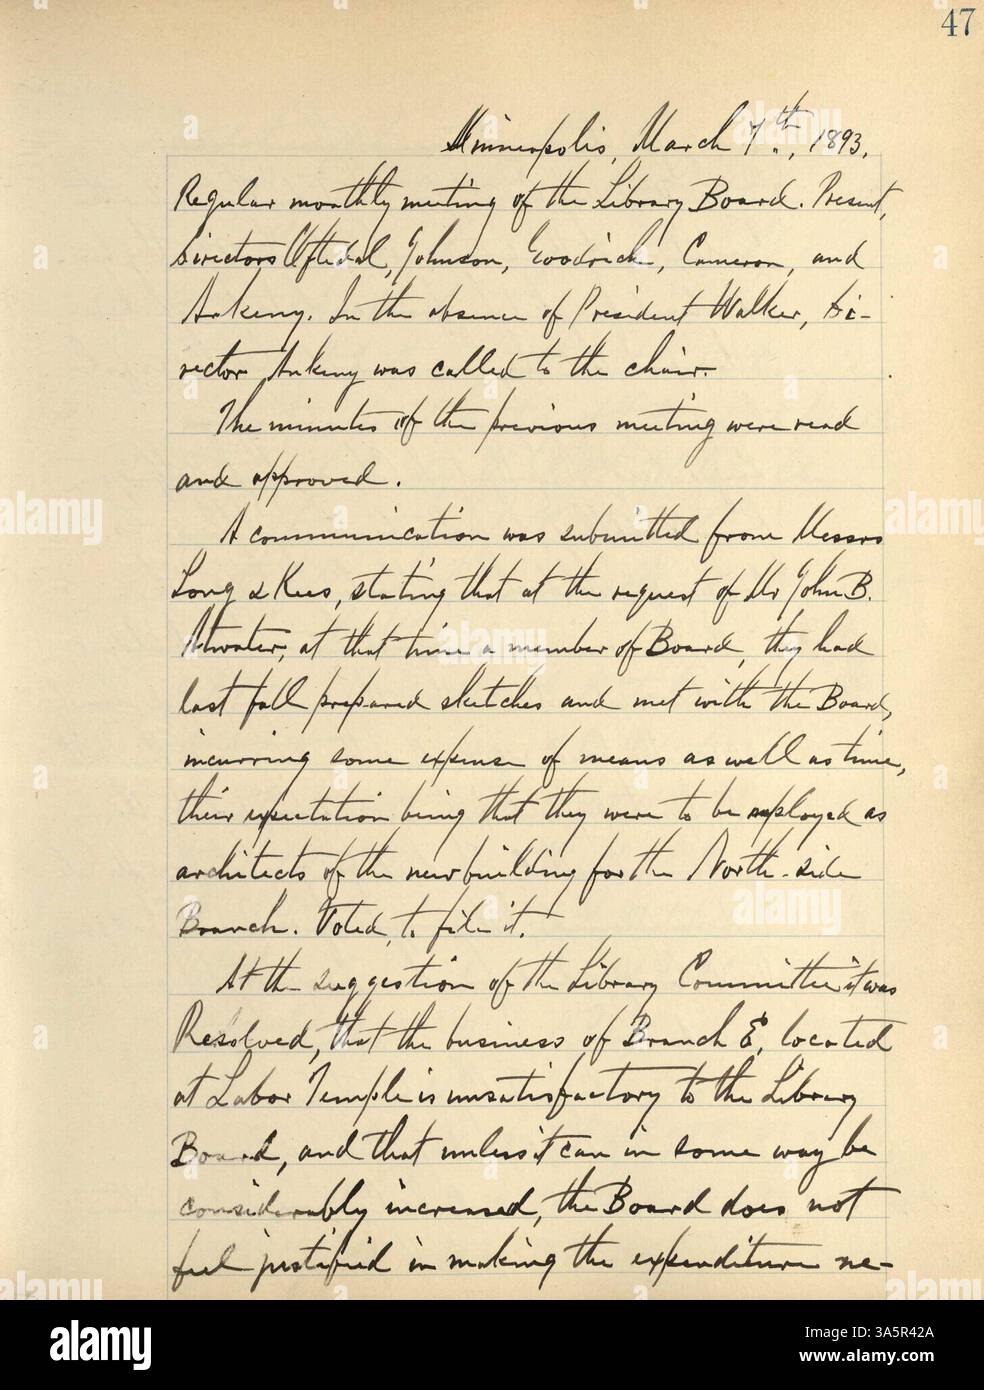 47
Minneapolis, March 7th, 1893.
Regular monthly meeting of the Library Board. Present,
Directors Oftedal, Johnson, Goodrich, Cameron, and
Ankeny. In the absence of President Walker, Di-
rector Ankeny was called to the chair.
The minutes of the previous meeting were read
and approved.
A communication was submitted from Messrs
Long & Kees, stating that at the request of Mr John B.
Atwater, at that time a member of Board, they had
last fall prepared sketches and met with the Board,
incurring some expense of means as well as time,
their expectation being that they were to be employed as
architects of the new building for the North-side
Branch. Voted, to file it.
At the suggestion of the Library Committee it was
Resolved, that the business of Branch E, located
at Labor Temple is unsatisfactory to the Library
Board, and that unless it can in some way be
considerably increased, the Board does not
feel justified in making the expenditure ne-
alamy
Image ID: 3A5R42A
www.alamy.com